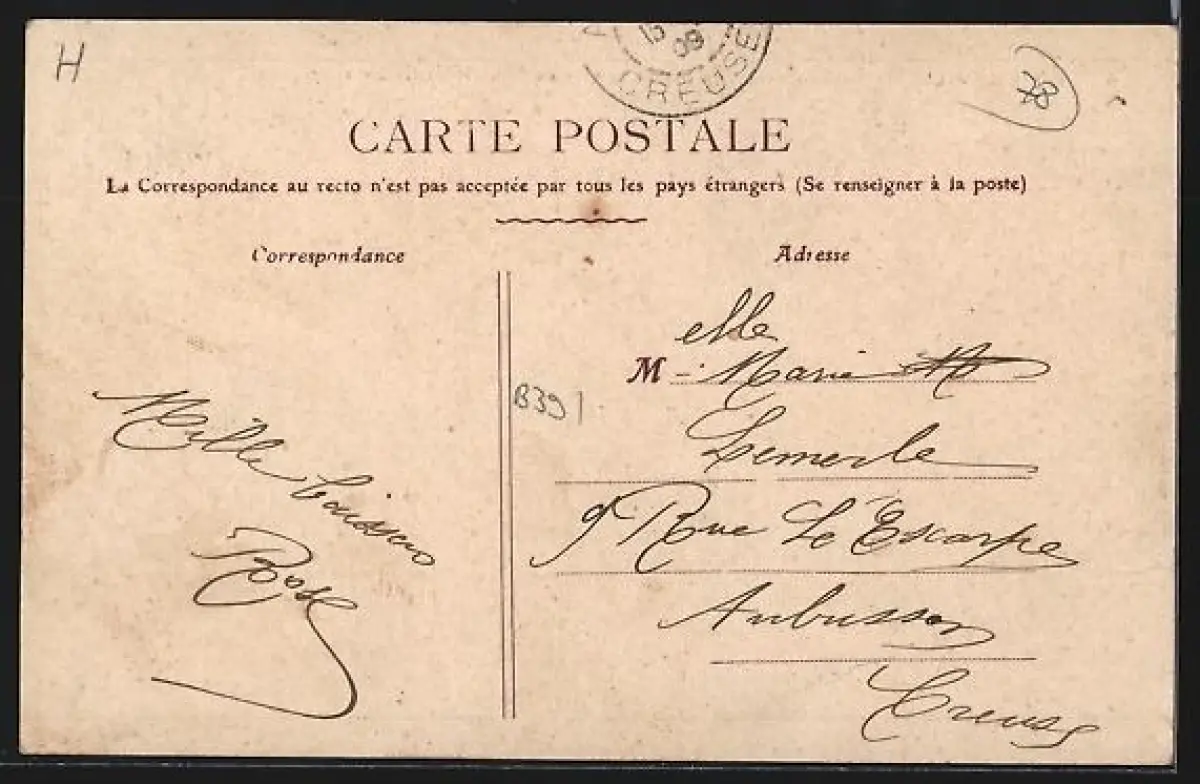 H
09
CREUSE
78
CARTE POSTALE
La Correspondance au recto n'est pas acceptée par tous les pays étrangers (Se renseigner à la poste)
Correspondance
Adresse
Mille baisers
Rose
B391
M elle Marie
Lemerle
9 Rue Le Escarpe
Aubusson
Creuse